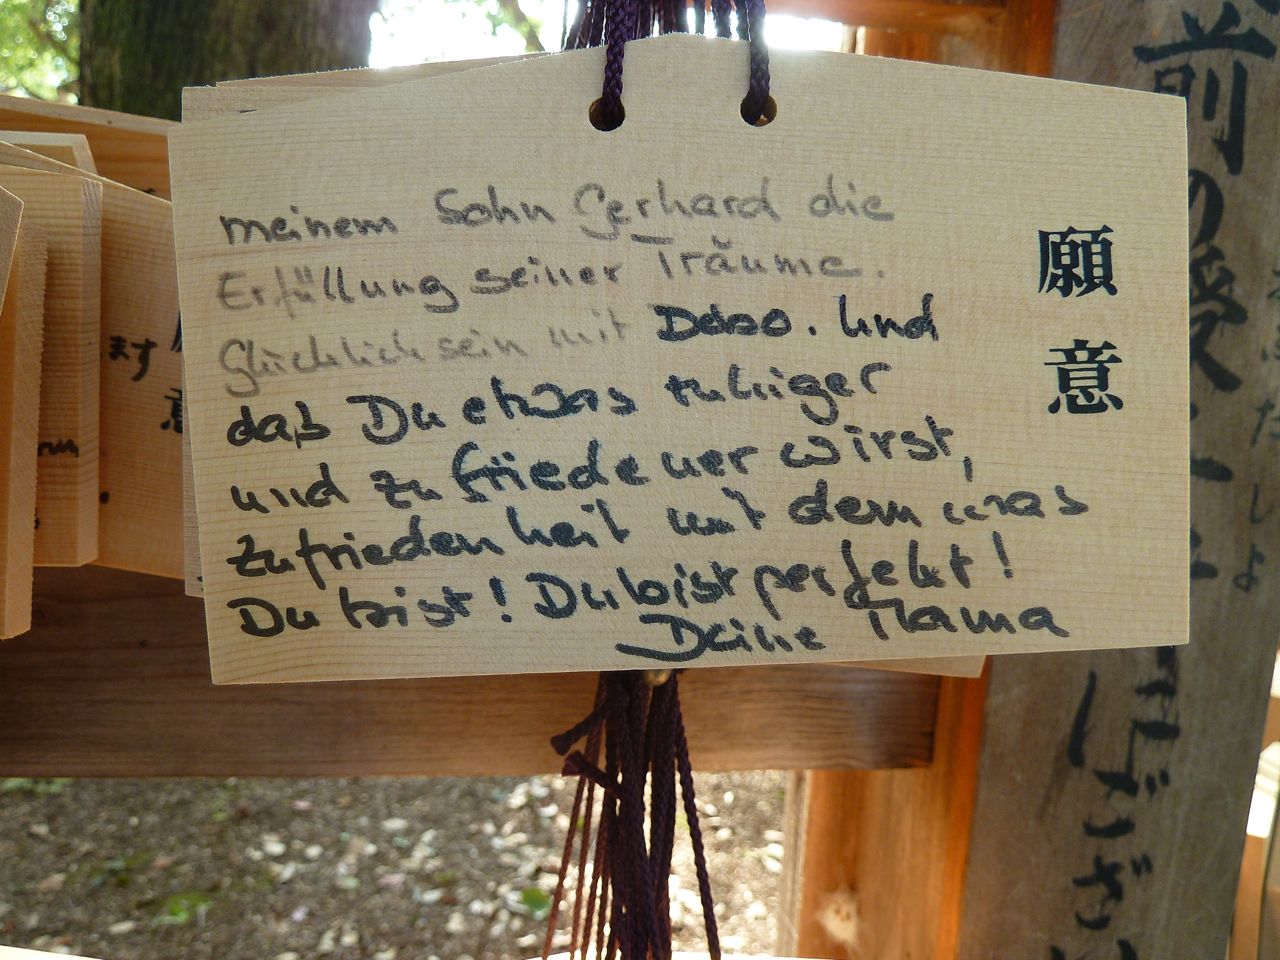 meinem Sohn Gerhard die
Erfüllung seiner Träume.
Glücklich sein mit . Und
daß Du etwas ruhiger
und zufriedener wirst,
zufriedenheit mit dem was
Du bist! Du bist perfekt!
Deine Mama
願意
ます
前の受
ござ